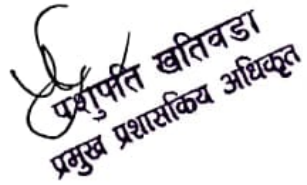 पशुपति खतिवडा
प्रमुख प्रशासकिय अधिकृत